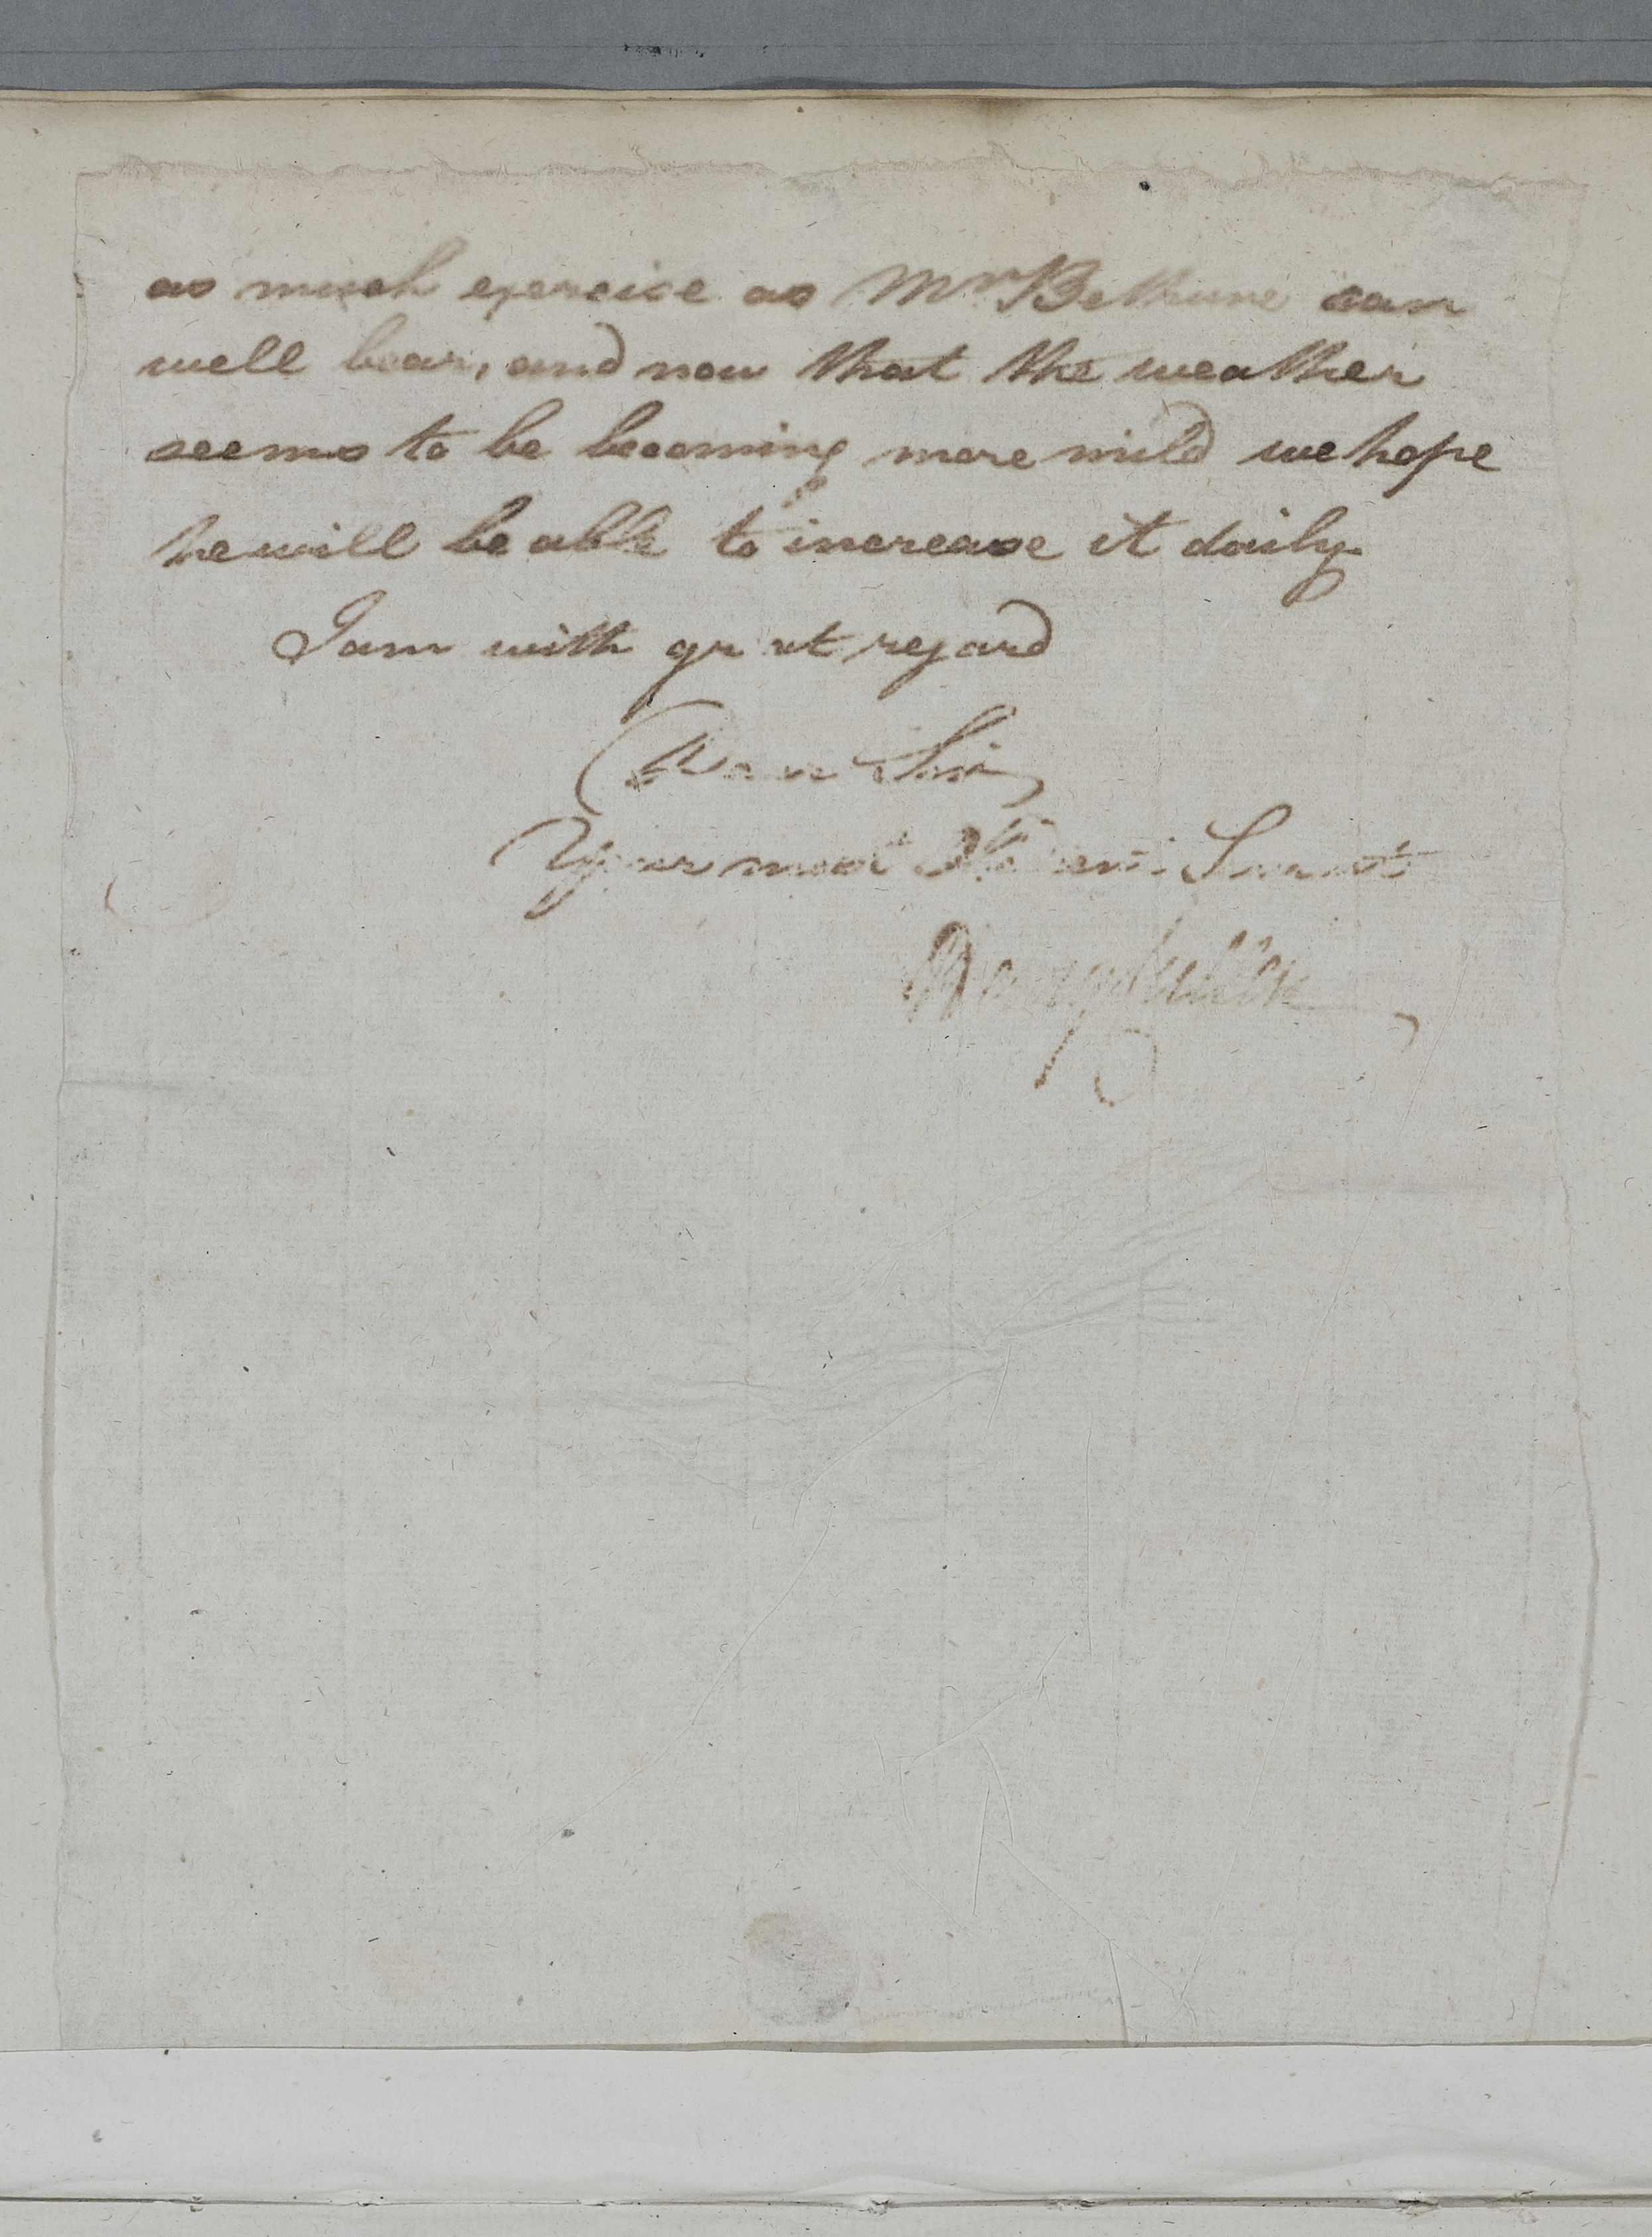 as much exercise as Mr Bethune can
well bear, and now that the weather
seems to be becoming more mild we hope
he will be able to increase it daily.
I am with great regard
Dear Sir,
Your most Obedient Servant
Henry